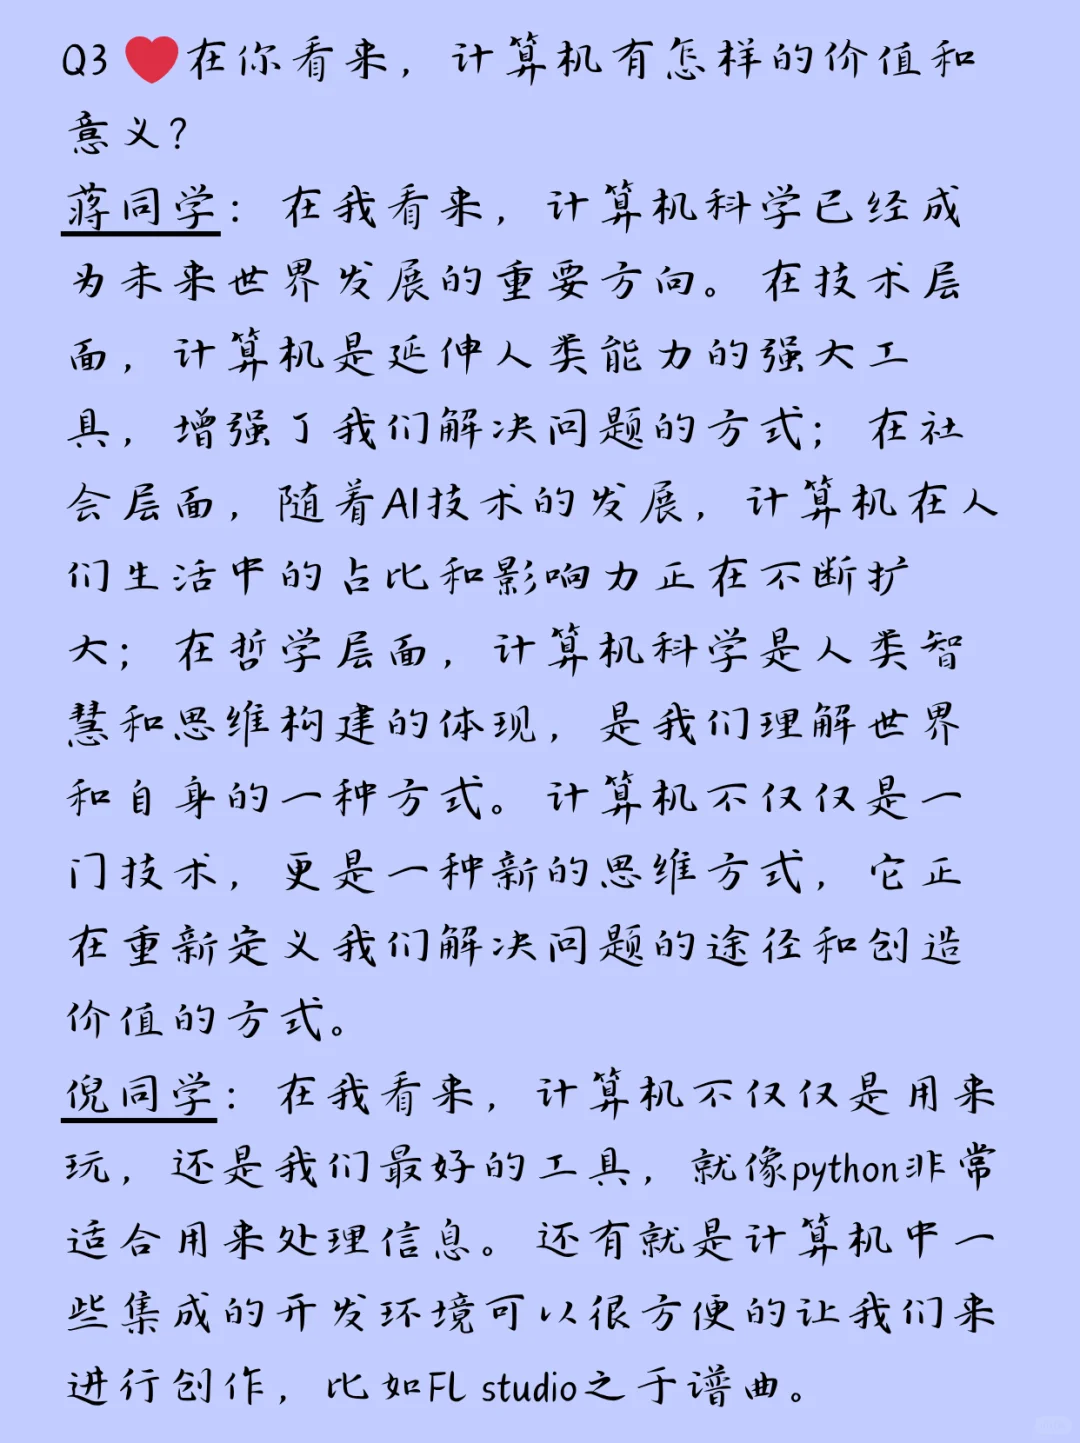 Q3 ❤在你看来，计算机有怎样的价值和
意义?
蒋同学：在我看来，计算机科学已经成
为未来世界发展的重要方向。在技术层
面，计算机是延伸人类能力的强大工
具，增强了我们解决问题的方式；在社
会层面，随着AI技术的发展，计算机在人
们生活中的占比和影响力正在不断扩
大；在哲学层面，计算机科学是人类智
慧和思维构建的体现，是我们理解世界
和自身的一种方式。计算机不仅仅是一
门技术，更是一种新的思维方式，它正
在重新定义我们解决问题的途径和创造
价值的方式。
倪同学：在我看来，计算机不仅仅是用来
玩，还是我们最好的工具，就像python非常
适合用来处理信息。还有就是计算机中一
些集成的开发环境可以很方便的让我们来
进行创作，比如FL studio之于谱曲。